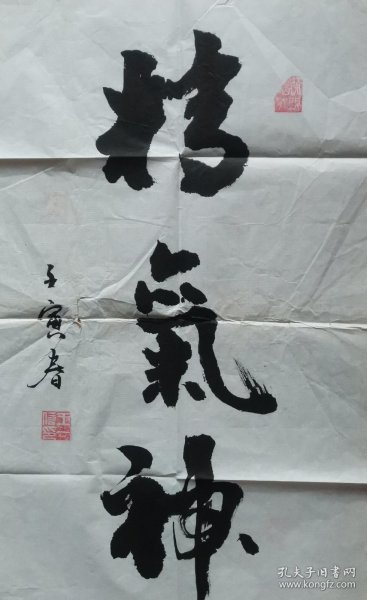 精氣神
壬寅春
孔夫子旧书网
www.kongfz.com